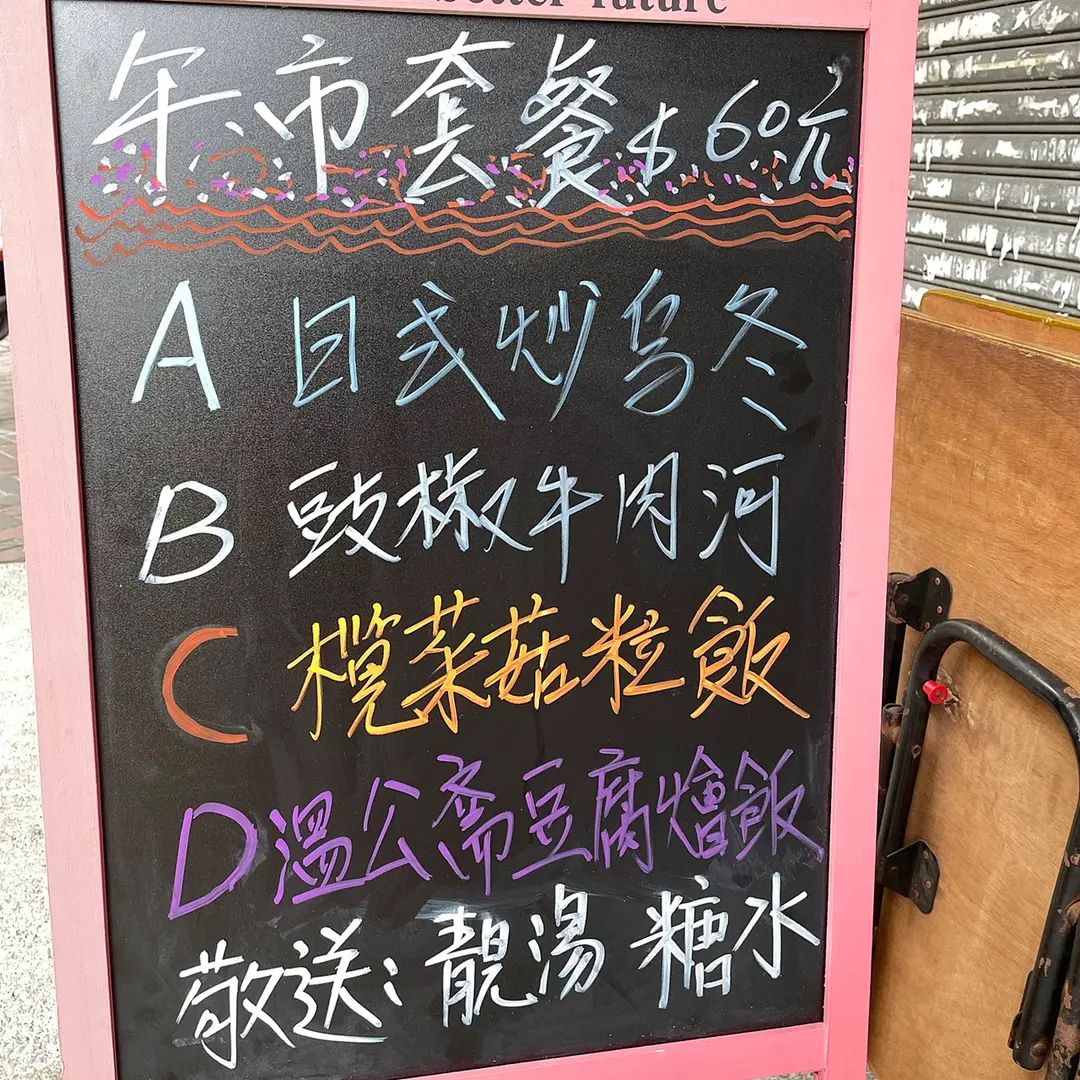 better future
午市套餐$60元
A 日式炒乌冬
B 豉椒牛肉河
C 榄菜菇粒飯
D 溫公斋豆腐燴飯
敬送：靚湯 糖水